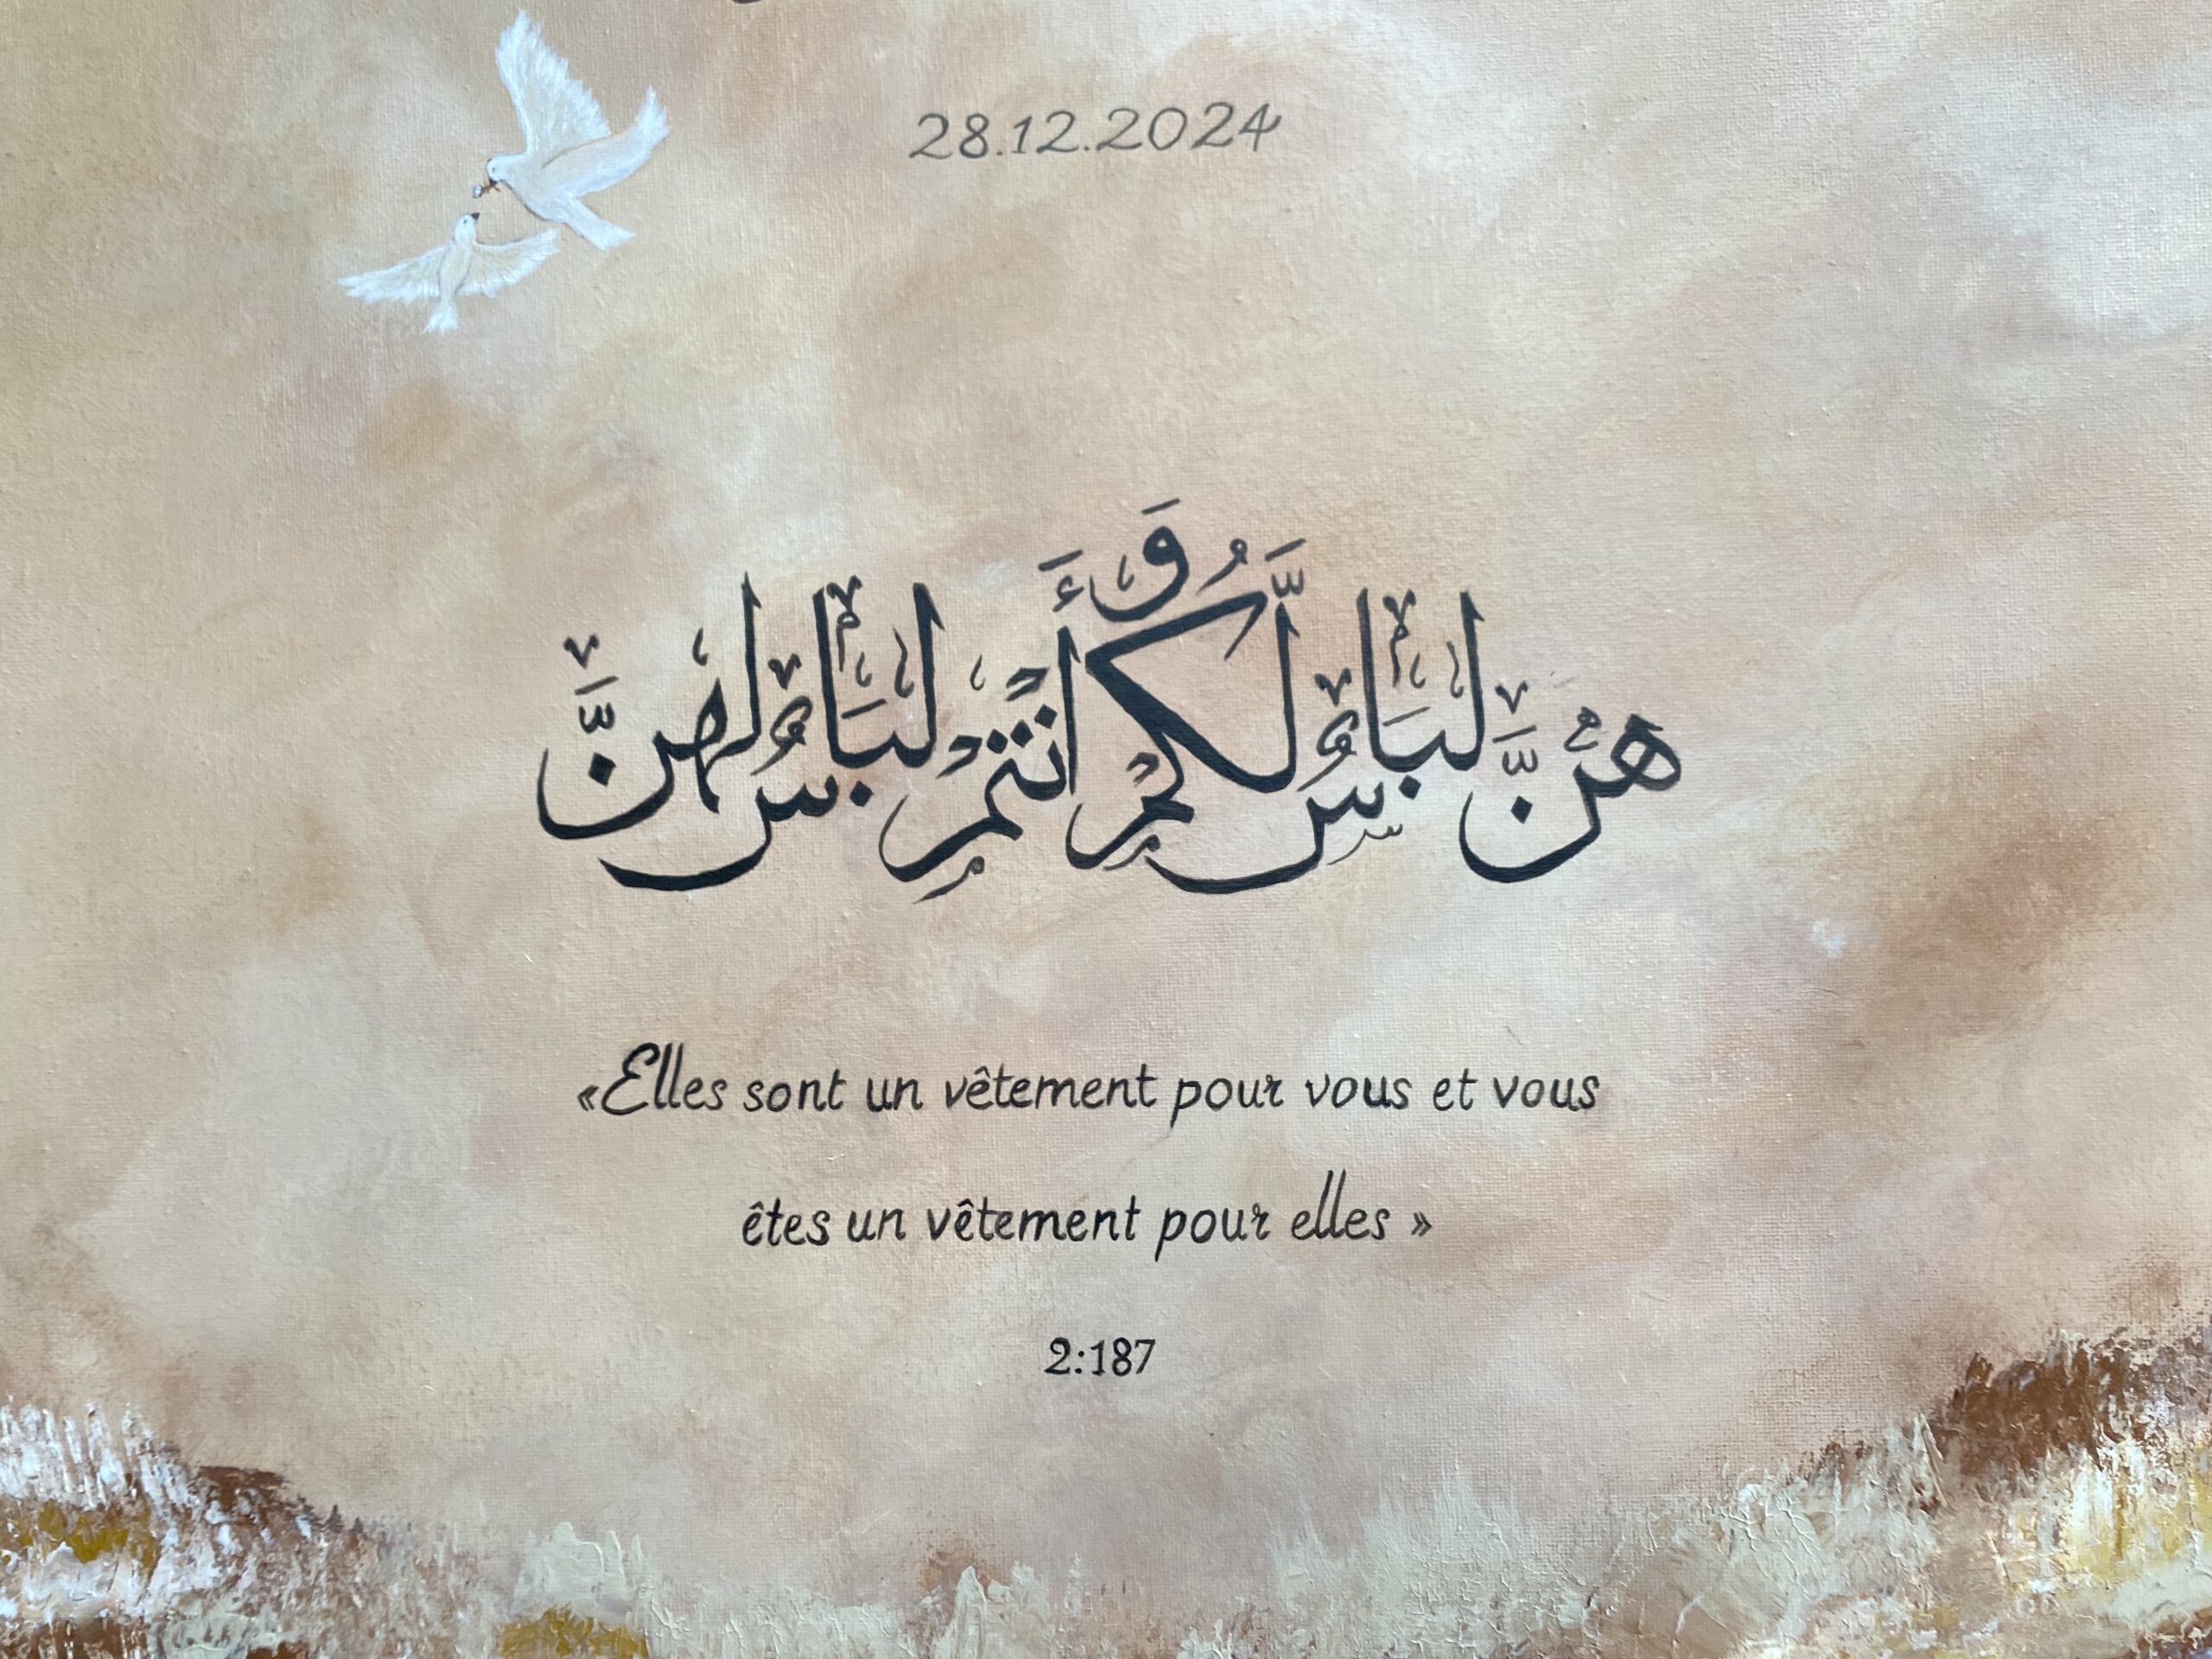 28.12.2024
هُنَّ لِبَاسٌ لَّكُمْ وَأَنْتُمْ لِبَاسٌ لَهُنَّ
«Elles sont un vêtement pour vous et vous
êtes un vêtement pour elles »
2:187